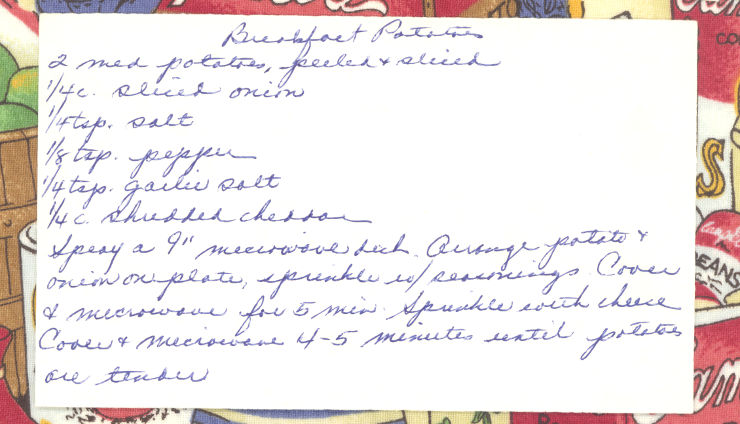 Breakfast Potatoes
2 med potatoes, peeled & sliced
1/4 c. sliced onion
1/4 tsp. salt
1/8 tsp. pepper
1/4 tsp. garlic salt
1/4 c. shredded cheddar
Spray a 9" microwave dish. Arrange potato &
onion on plate, sprinkle w/ seasonings. Cover
& microwave for 5 min. Sprinkle with cheese
Cover & microwave 4-5 minutes until potatoes
are tender
BEANS